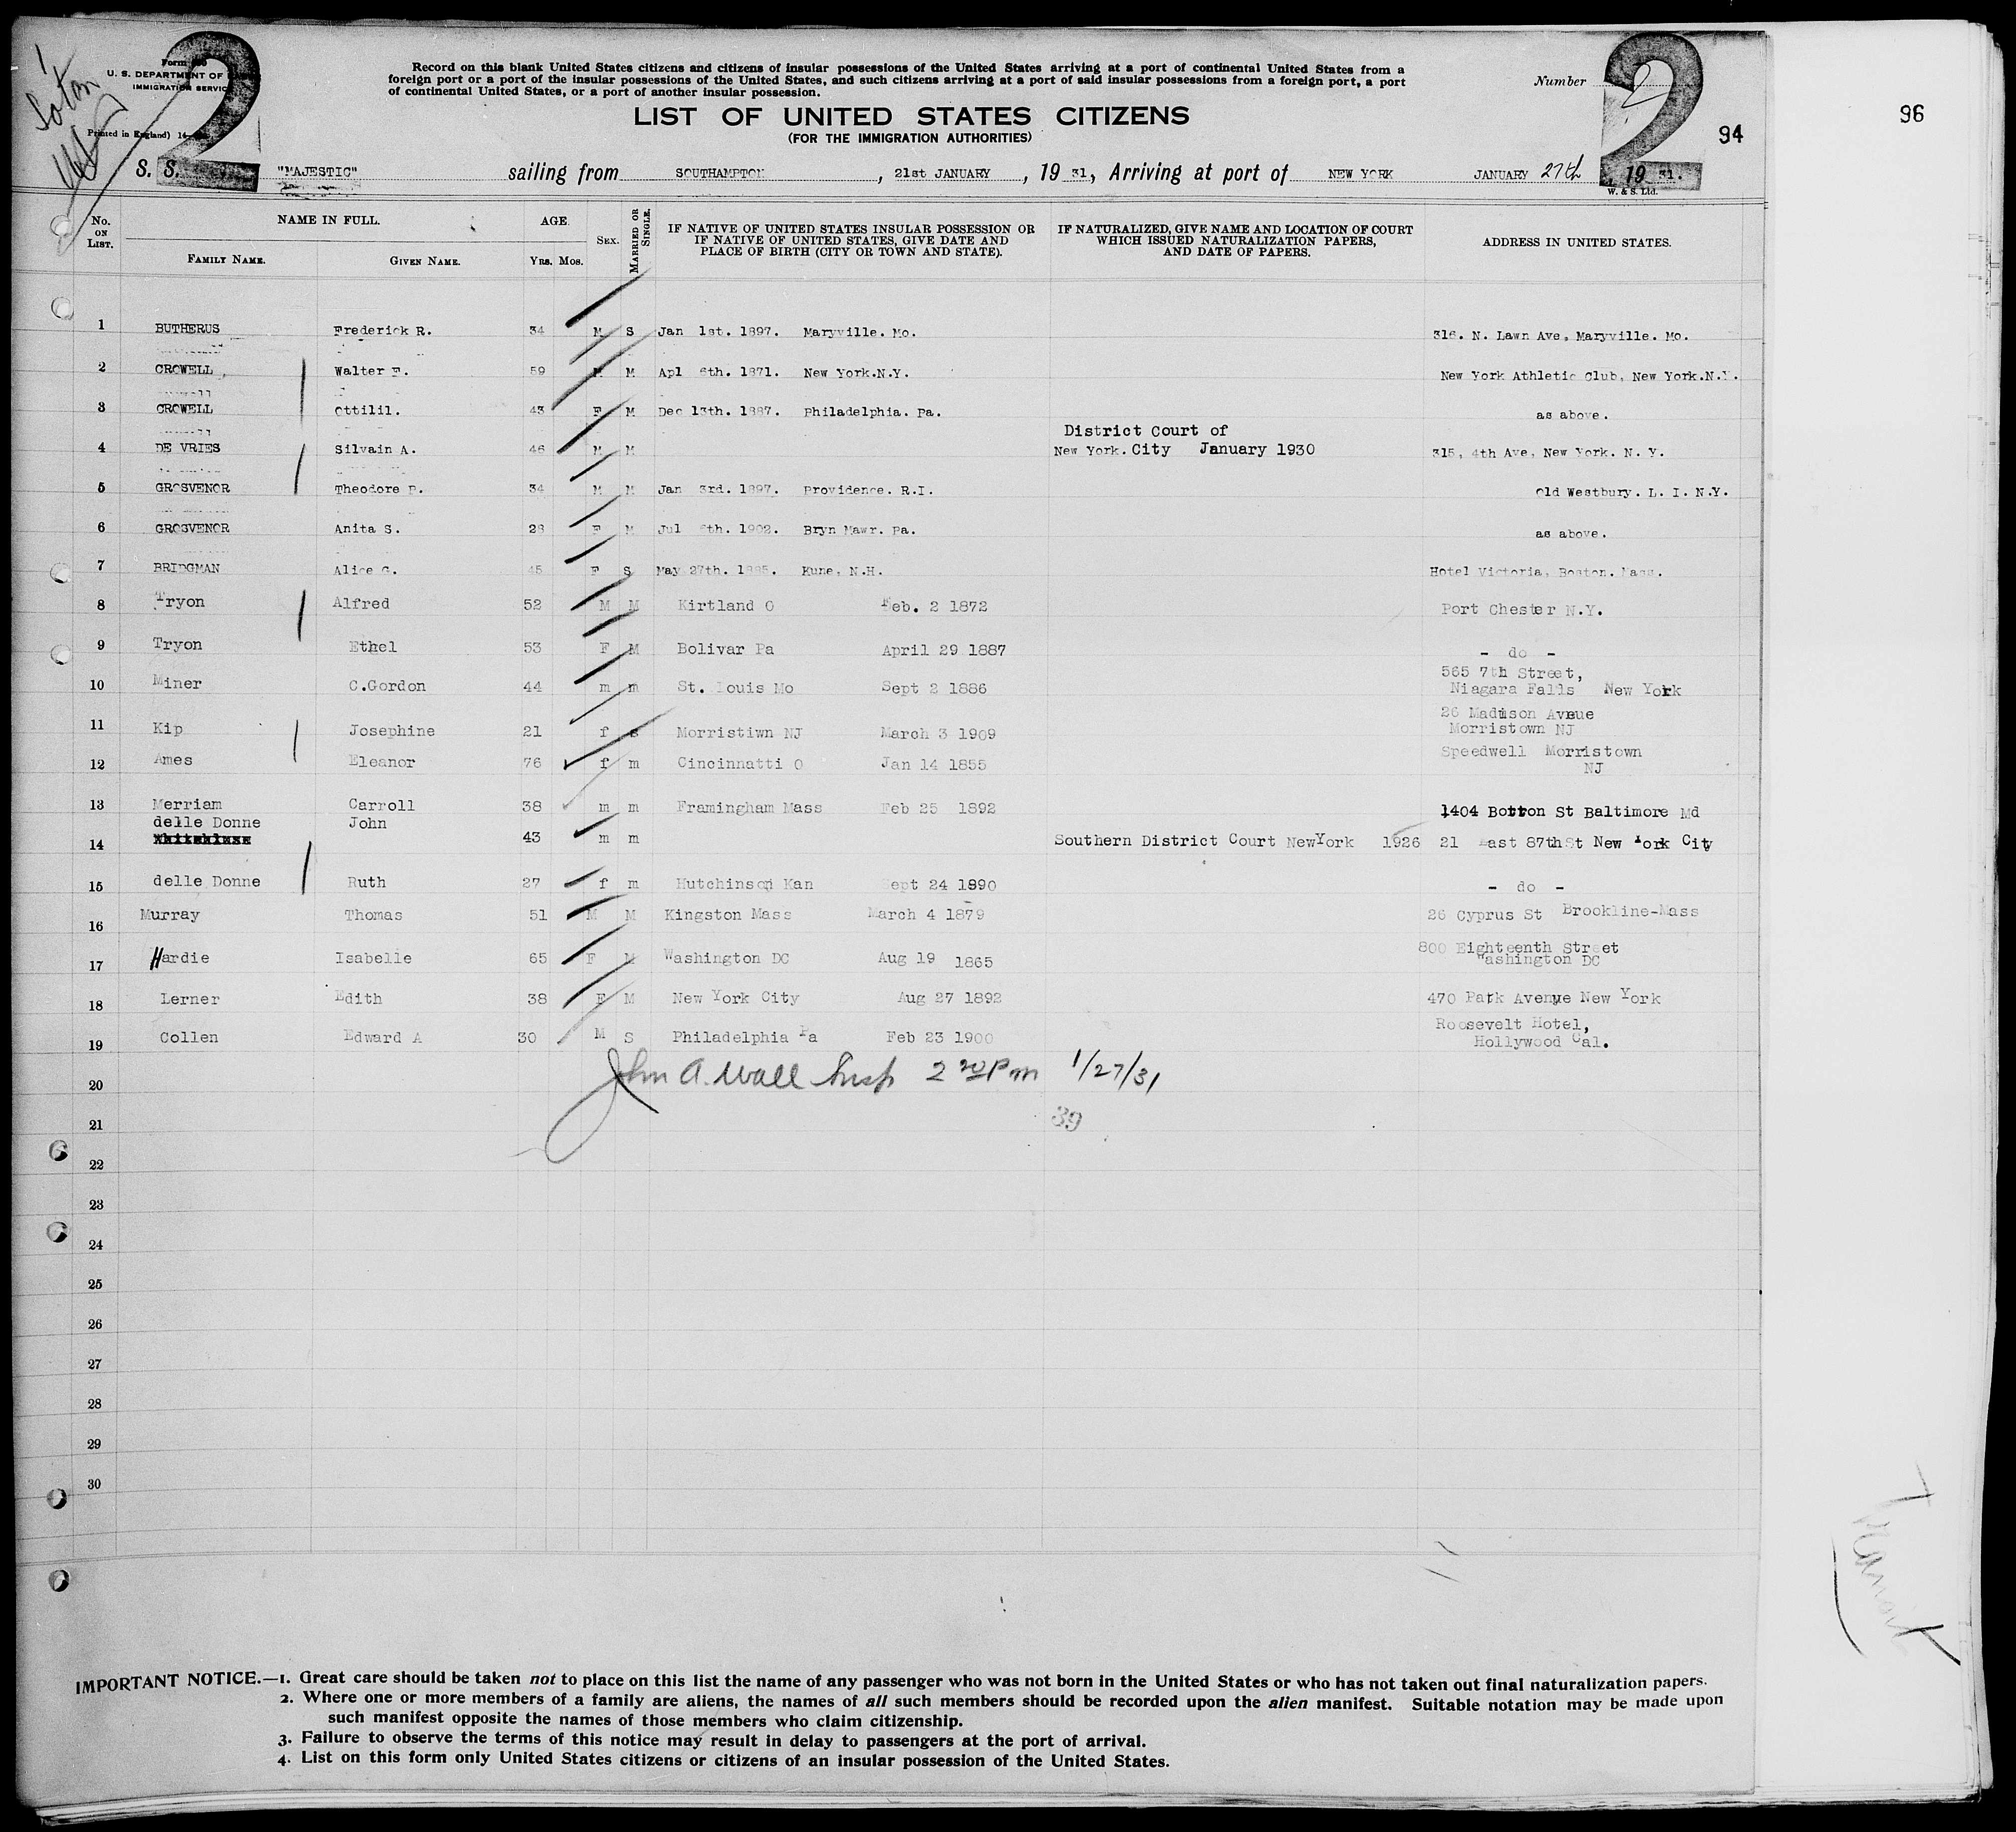 Form
U. S. DEPARTMENT OF
IMMIGRATION SERVICE
Printed in England)
So'ton
2
2
Record on this blank United States citizens and citizens of insular possessions of the United States arriving at a port of continental United States from a
foreign port or a port of the insular possessions of the United States, and such citizens arriving at a port of said insular possessions from a foreign port, a port
of continental United States, or a port of another insular possession.
Number 2
LIST OF UNITED STATES CITIZENS
(FOR THE IMMIGRATION AUTHORITIES)
94
96
S. S. "MAJESTIC" sailing from SOUTHAMPTON, 21st JANUARY, 19 31, Arriving at port of NEW YORK JANUARY 27th, 19 31.
W. & S. Ltd.
No. ON LIST. NAME IN FULL. AGE. SEX. MARRIED OR SINGLE. IF NATIVE OF UNITED STATES INSULAR POSSESSION OR IF NATIVE OF UNITED STATES, GIVE DATE AND PLACE OF BIRTH (CITY OR TOWN AND STATE). IF NATURALIZED, GIVE NAME AND LOCATION OF COURT WHICH ISSUED NATURALIZATION PAPERS, AND DATE OF PAPERS. ADDRESS IN UNITED STATES.
FAMILY NAME. GIVEN NAME. YRS. MOS.
1 BUTHERUS Frederick R. 34 M S Jan 1st. 1897. Maryville. Mo. 316. N. Lawn Ave, Maryville. Mo.
2 CROWELL Walter F. 59 M M Apl 6th. 1871. New York.N.Y. New York Athletic Club, New York.N.Y.
3 CROWELL Ottilil. 43 F M Dec 13th. 1887. Philadelphia. Pa. as above.
District Court of
4 DE VRIES Silvain A. 46 M M New York. City January 1930 315, 4th Ave, New York. N. Y.
5 GROSVENOR Theodore P. 34 M M Jan 3rd. 1897. Providence. R.I. Old Westbury. L. I. N.Y.
6 GROSVENOR Anita S. 28 F M Jul 6th. 1902. Bryn Mawr. Pa. as above.
7 BRIDGMAN Alice G. 45 F S May 27th. 1885. Kune, N.H. Hotel Victoria, Boston. Mass.
8 Tryon Alfred 52 M M Kirtland O Feb. 2 1872 Port Chester N.Y.
9 Tryon Ethel 53 F M Bolivar Pa April 29 1887 - do -
565 7th Street,
10 Miner C.Gordon 44 m m St. Louis Mo Sept 2 1886 Niagara Falls New York
26 Madison Avnue
11 Kip Josephine 21 f s Morristiwn NJ March 3 1909 Morristown NJ
Speedwell Morristown
12 Ames Eleanor 76 f m Cincinnatti O Jan 14 1855 NJ
13 Merriam Carroll 38 m m Framingham Mass Feb 25 1892 1404 Botton St Baltimore Md
delle Donne John
14 43 m m Southern District Court NewYork 1926 21 East 87thSt New York City
15 delle Donne Ruth 27 f m Hutchinson Kan Sept 24 1890 - do -
16 Murray Thomas 51 M M Kingston Mass March 4 1879 26 Cyprus St Brookline-Mass
800 Eighteenth Street
17 Hardie Isabelle 65 F M Washington DC Aug 19 1865 Washington DC
18 Lerner Edith 38 F M New York City Aug 27 1892 470 Park Avenue New York
Roosevelt Hotel,
19 Collen Edward A 30 M S Philadelphia Pa Feb 23 1900 Hollywood Cal.
20 John A. Wall Insp 2 20 Pm 1/27/31
21 39
22
23
24
25
26
27
28
29
30
IMPORTANT NOTICE.—1. Great care should be taken not to place on this list the name of any passenger who was not born in the United States or who has not taken out final naturalization papers.
2. Where one or more members of a family are aliens, the names of all such members should be recorded upon the alien manifest. Suitable notation may be made upon
such manifest opposite the names of those members who claim citizenship.
3. Failure to observe the terms of this notice may result in delay to passengers at the port of arrival.
4. List on this form only United States citizens or citizens of an insular possession of the United States.